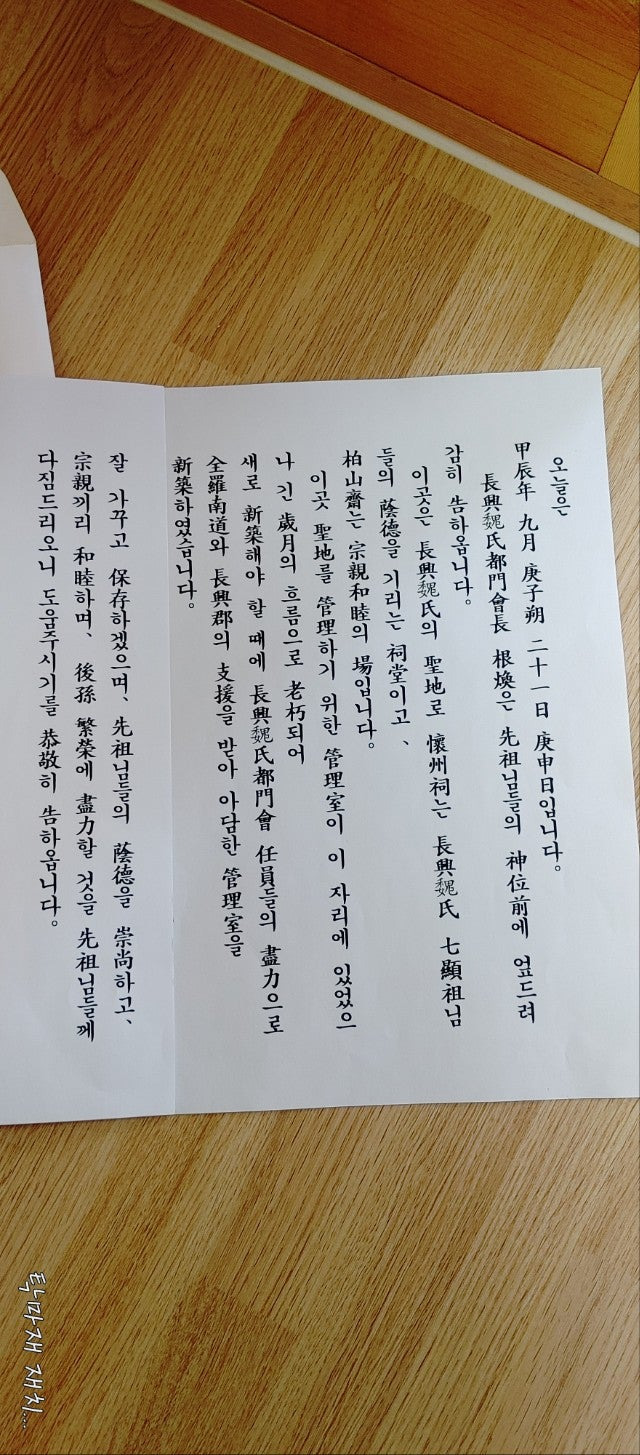 오늘은
甲辰年 九月 庚子朔 二十一日 庚申日입니다.
長興魏氏都門會長 根煥은 先祖님들의 神位前에 엎드려
감히 告하옵니다.
이곳은 長興魏氏의 聖地로 懷州祠는 長興魏氏 七顯祖님
들의 蔭德을 기리는 祠堂이고、
柏山齋는 宗親和睦의 場입니다。
이곳 聖地를 管理하기 위한 管理室이 이 자리에 있었으
나 긴 歲月의 흐름으로 老朽되어
새로 新築해야 할 때에 長興魏氏都門會 任員들의 盡力으로
全羅南道와 長興郡의 支援을 받아 아담한 管理室을
新築하였습니다。
잘 가꾸고 保存하겠으며、先祖님들의 蔭德을 崇尚하고、
宗親끼리 和睦하며、 後孫 繁榮에 盡力할 것을 先祖님들께
다짐드리오니 도움주시기를 恭敬히 告하옵니다。
틱마재 재치...